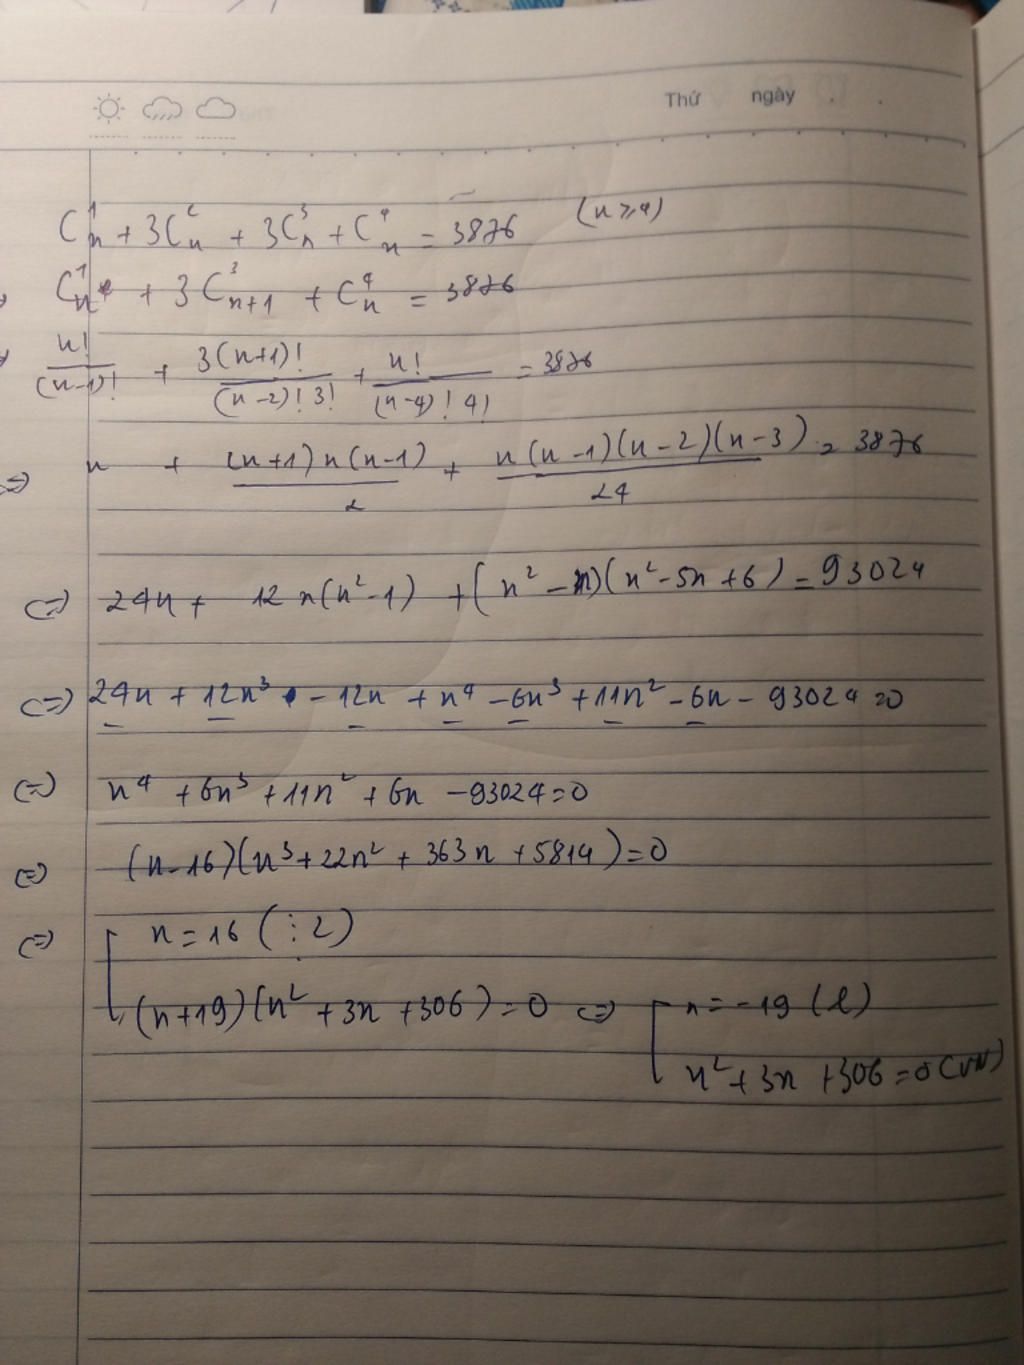 Thứ ngày
C¹ₙ + 3C²ₙ + 3C³ₙ + C⁴ₙ = 3876 (n ≥ 4)
C¹ₙ + 3C³ₙ₊₁ + C⁴ₙ = 3876
n!/(n-1)! + 3(n+1)!/(n-2)! 3! + n!/(n-4)! 4! = 3876
<=> n + (n+1)n(n-1)/2 + n(n-1)(n-2)(n-3)/24 = 3876
<=> 24n + 12n(n²-1) + (n²-n)(n²-5n+6) = 93024
<=> 24n + 12n³ - 12n + n⁴ - 6n³ + 11n² - 6n - 93024 = 0
<=> n⁴ + 6n³ + 11n² + 6n - 93024 = 0
<=> (n-16)(n³ + 22n² + 363n + 5814) = 0
<=> [ n = 16 (⋮ 2)
(n+19)(n² + 3n + 306) = 0 <=> [ n = -19 (l)
n² + 3n + 306 = 0 (VN)